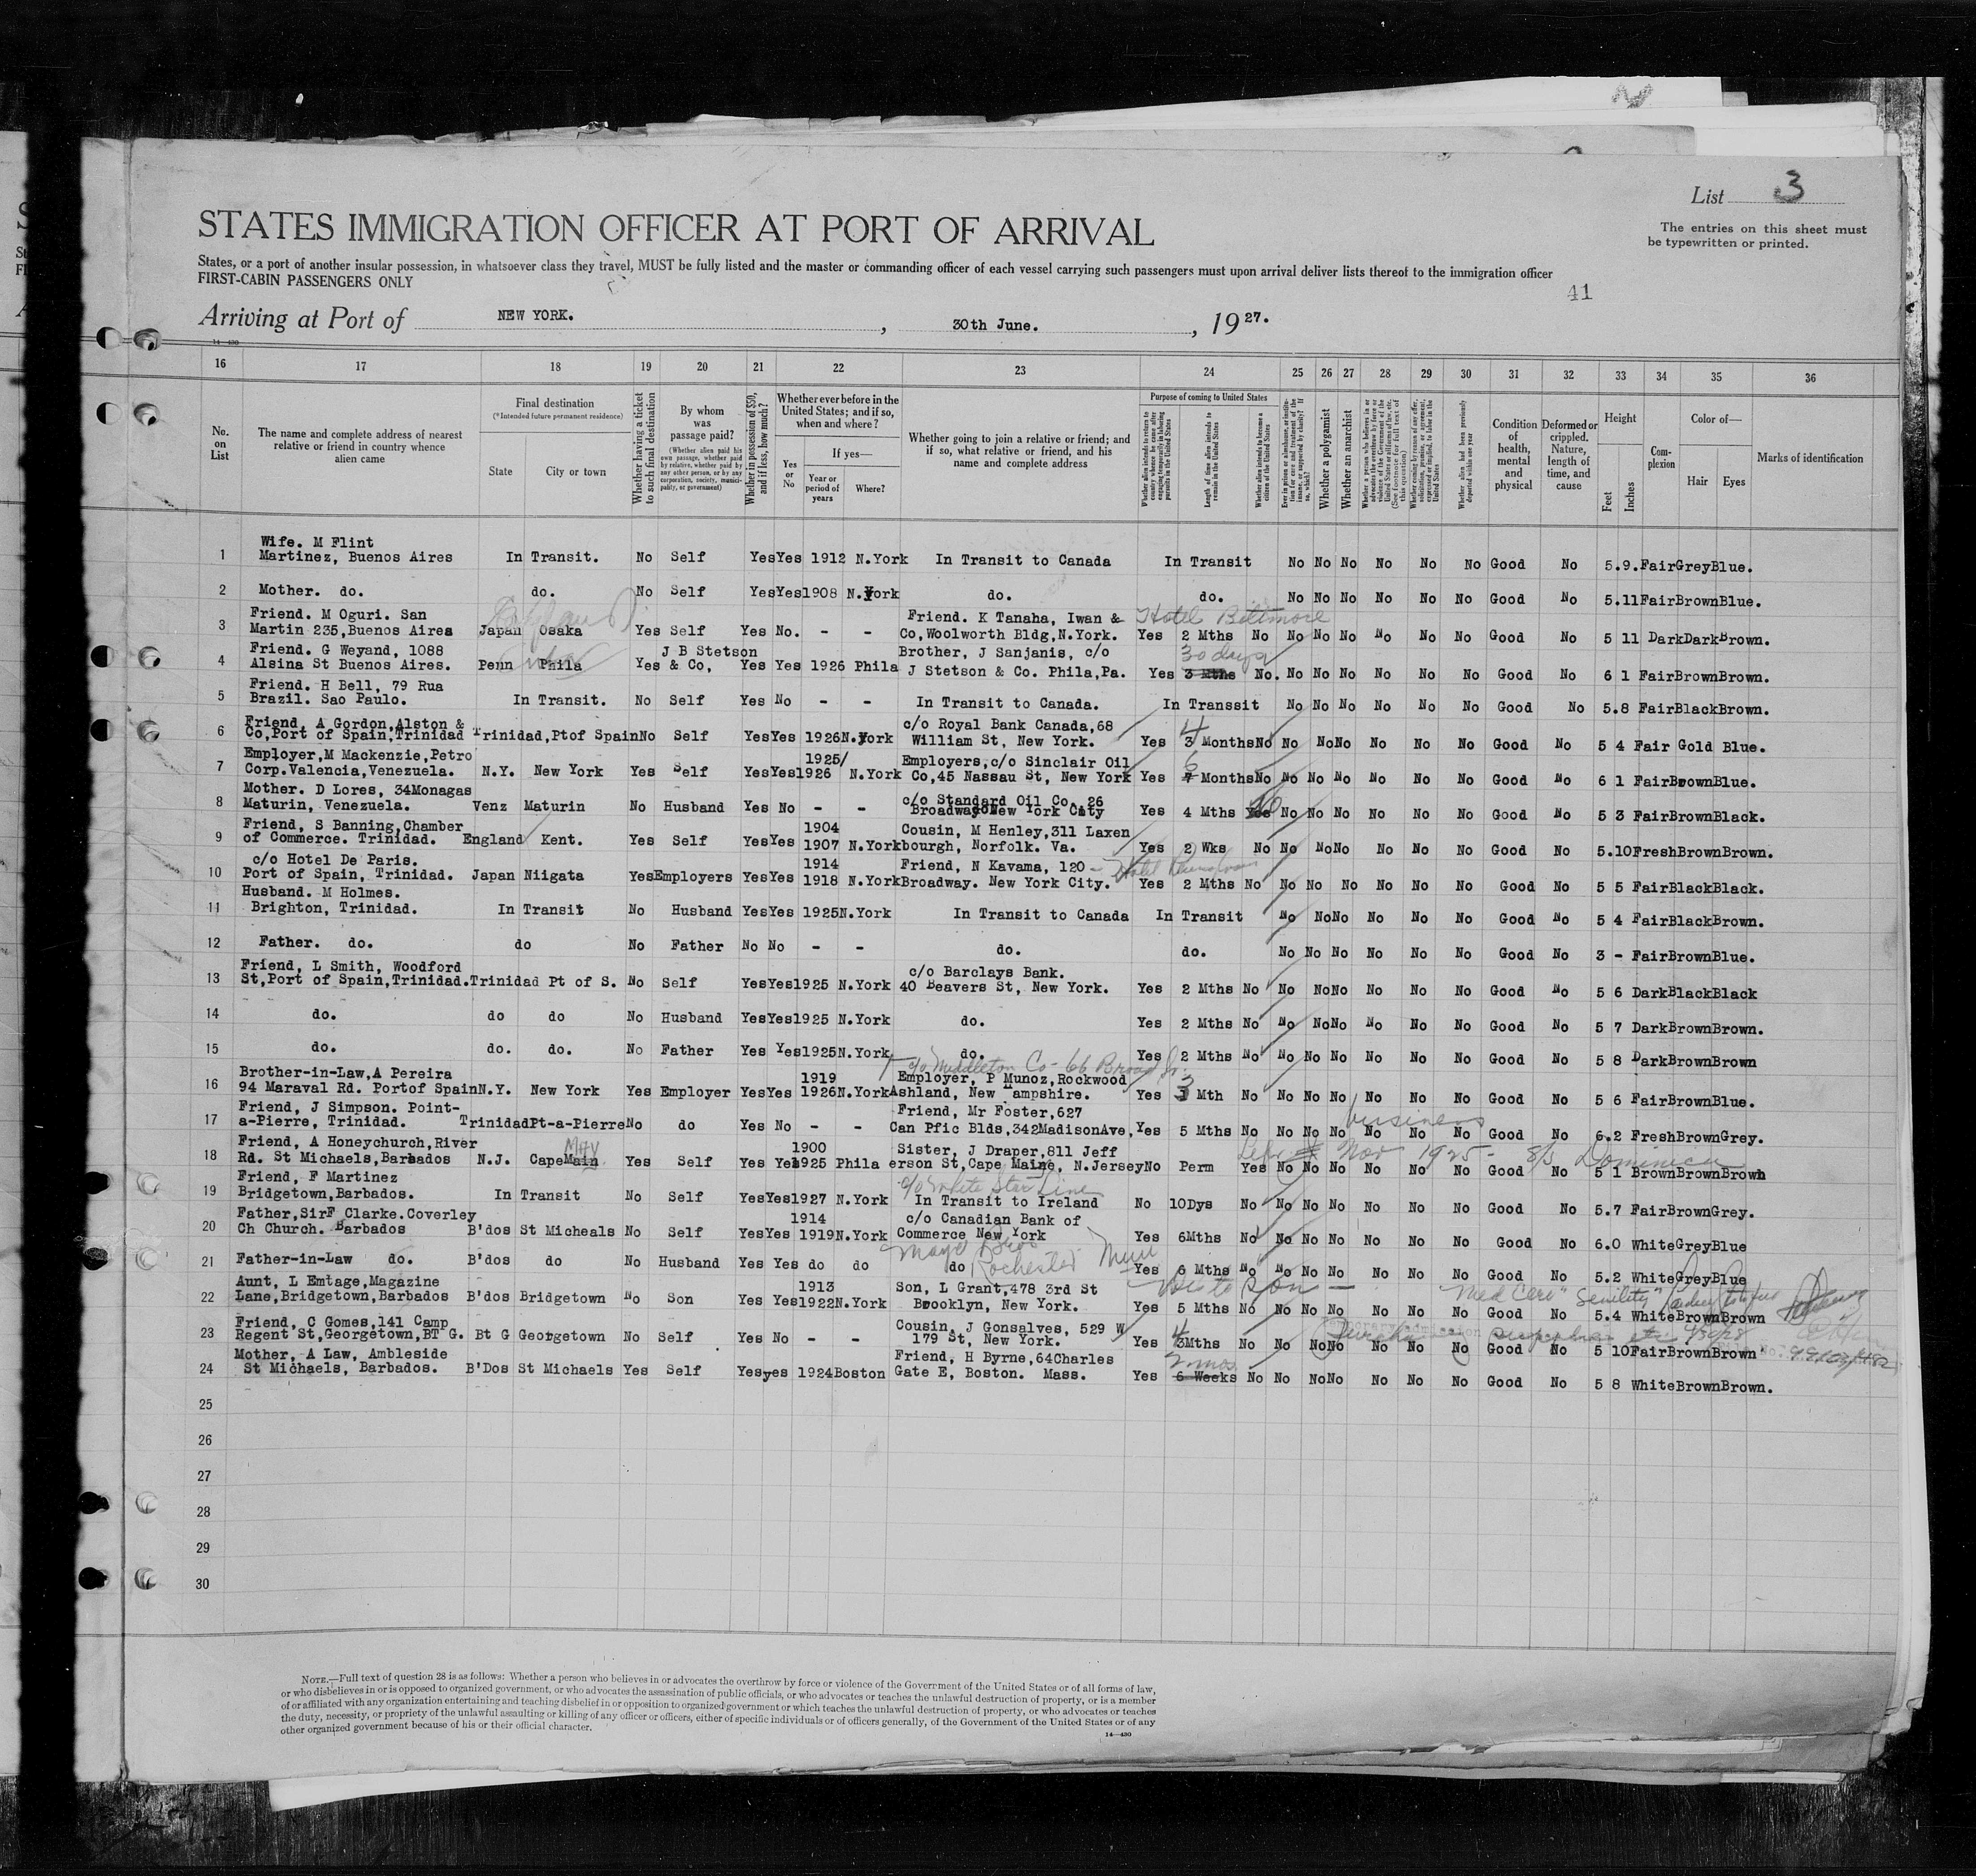 List 3
The entries on this sheet must
be typewritten or printed.
STATES IMMIGRATION OFFICER AT PORT OF ARRIVAL
States, or a port of another insular possession, in whatsoever class they travel, MUST be fully listed and the master or commanding officer of each vessel carrying such passengers must upon arrival deliver lists thereof to the immigration officer
FIRST-CABIN PASSENGERS ONLY
41
Arriving at Port of NEW YORK. , 30th June. , 1927.
14—430
16 17 18 19 20 21 22 23 24 25 26 27 28 29 30 31 32 33 34 35 36
No. on List
The name and complete address of nearest relative or friend in country whence alien came
Final destination
(*Intended future permanent residence)
State
City or town
Whether having a ticket to such final destination
By whom was passage paid?
(Whether alien paid his own passage, whether paid by relative, whether paid by any other person, or by any corporation, society, municipality, or government)
Whether in possession of $50, and if less, how much?
Whether ever before in the United States; and if so, when and where?
Yes or No
If yes—
Year or period of years
Where?
Whether going to join a relative or friend; and if so, what relative or friend, and his name and complete address
Purpose of coming to United States
Whether alien intends to return to country whence he came after engaging temporarily in laboring pursuits in the United States
Length of time alien intends to remain in the United States
Whether alien intends to become a citizen of the United States
Ever in prison or almshouse, or institution for care and treatment of the insane, or supported by charity? If so, which?
Whether a polygamist
Whether an anarchist
Whether coming by reason of any offer, solicitation, promise, or agreement, expressed or implied, to labor in the United States
Whether alien had been previously deported within one year
Condition of health, mental and physical
Deformed or crippled. Nature, length of time, and cause
Height
Feet
Inches
Complexion
Color of—
Hair
Eyes
Marks of identification
Wife. M Flint
1 Martinez, Buenos Aires In Transit. No Self Yes Yes 1912 N.York In Transit to Canada In Transit No No No No No No Good No 5.9. Fair Grey Blue.
2 Mother. do. do. No Self Yes Yes 1908 N.York do. do. No No No No No No Good No 5.11 Fair Brown Blue.
Friend. M Oguri. San Friend. K Tanaha, Iwan & Hotel Biltmore
3 Martin 235,Buenos Aires Japan Osaka Yes Self Yes No. - - Co,Woolworth Bldg,N.York. Yes 2 Mths No No No No No No No Good No 5 11 Dark Dark Brown.
Friend. G Weyand, 1088 J B Stetson Brother, J Sanjanis, c/o 30 days
4 Alsina St Buenos Aires. Penn Phila Yes & Co, Yes Yes 1926 Phila J Stetson & Co. Phila,Pa. Yes 3 Mths No. No No No No No No Good No 6 1 Fair Brown Brown.
Friend. H Bell, 79 Rua
5 Brazil. Sao Paulo. In Transit. No Self Yes No - - In Transit to Canada. In Transsit No No No No No No Good No 5.8 Fair Black Brown.
Friend, A Gordon,Alston & c/o Royal Bank Canada,68 4
6 Co,Port of Spain,Trinidad Trinidad,Pt of Spain No Self Yes Yes 1926 N.York William St, New York. Yes 3 Months No No No No No No No Good No 5 4 Fair Gold Blue.
Employer,M Mackenzie,Petro 1925/ Employers,c/o Sinclair Oil 6
7 Corp.Valencia,Venezuela. N.Y. New York Yes Self Yes Yes 1926 N.York Co,45 Nassau St, New York Yes 7 Months No No No No No No No Good No 6 1 Fair Brown Blue.
Mother. D Lores, 34Monagas c/o Standard Oil Co. 26 No
8 Maturin, Venezuela. Venz Maturin No Husband Yes No - - Broadway New York City Yes 4 Mths Yes No No No No No No Good No 5 3 Fair Brown Black.
Friend, S Banning,Chamber 1904 Cousin, M Henley,311 Laxen
9 of Commerce. Trinidad. England Kent. Yes Self Yes Yes 1907 N.York bourgh, Norfolk. Va. Yes 2 Wks No No No No No No No Good No 5.10 Fresh Brown Brown.
c/o Hotel De Paris. 1914 Friend, N Kavama, 120 Hotel
10 Port of Spain, Trinidad. Japan Niigata Yes Employers Yes Yes 1918 N.York Broadway. New York City. Yes 2 Mths No No No No No No No Good No 5 5 Fair Black Black.
Husband. M Holmes.
11 Brighton, Trinidad. In Transit No Husband Yes Yes 1925 N.York In Transit to Canada In Transit No No No No No No Good No 5 4 Fair Black Brown.
12 Father. do. do No Father No No - - do. do. No No No No No No Good No 3 - Fair Brown Blue.
Friend, L Smith, Woodford c/o Barclays Bank.
13 St,Port of Spain,Trinidad. Trinidad Pt of S. No Self Yes Yes 1925 N.York 40 Beavers St, New York. Yes 2 Mths No No No No No No No Good No 5 6 Dark Black Black
14 do. do do No Husband Yes Yes 1925 N.York do. Yes 2 Mths No No No No No No No Good No 5 7 Dark Brown Brown.
15 do. do. do. No Father Yes Yes 1925 N.York do. Yes 2 Mths No No No No No No No Good No 5 8 Dark Brown Brown
c/o Middleton Co - 66 Broad St.
Brother-in-Law,A Pereira 1919 Employer, P Munoz,Rockwood
16 94 Maraval Rd. Port of Spain N.Y. New York Yes Employer Yes Yes 1926 N.York Ashland, New ampshire. Yes 3 Mth No No No No No No No Good No 5 6 Fair Brown Blue.
Friend, J Simpson. Point- Friend, Mr Foster,627 business
17 a-Pierre, Trinidad. Trinidad Pt-a-Pierre No do Yes No - - Can Pfic Blds,342MadisonAve, Yes 5 Mths No No No No No No No Good No 6.2 Fresh Brown Grey.
Friend, A Honeychurch,River May 1900 Sister, J Draper,811 Jeff Nov 1925 - S/S Dominica
18 Rd. St Michaels,Barbados N.J. Cape Main Yes Self Yes Yes 1925 Phila erson St,Cape Maine, N.Jersey No Perm Yes No No No No No No Good No 5 1 Brown Brown Brown
Friend, F Martinez c/o White Star Line
19 Bridgetown,Barbados. In Transit No Self Yes Yes 1927 N.York In Transit to Ireland No 10Dys No No No No No No No Good No 5.7 Fair Brown Grey.
Father,SirF Clarke.Coverley 1914 c/o Canadian Bank of
20 Ch Church. Barbados B'dos St Micheals No Self Yes Yes 1919 N.York Commerce New York Yes 6Mths No No No No No No No Good No 6.0 White Grey Blue
Mayo Bros Rochester Minn
21 Father-in-Law do. B'dos do No Husband Yes Yes do do do Yes 6 Mths No No No No No No No Good No 5.2 White Grey Blue
Aunt, L Emtage,Magazine 1913 Son, L Grant,478 3rd St Vis to Son — Med Cert "Senility"
22 Lane,Bridgetown,Barbados B'dos Bridgetown No Son Yes Yes 1922 N.York Brooklyn, New York. Yes 5 Mths No No No No No No No Good No 5.4 White Brown Brown
Friend, C Gomes,141 Camp Cousin, J Gonsalves, 529 W 4
23 Regent St,Georgetown,BT G. Bt G Georgetown No Self Yes No - - 179 St, New York. Yes 3Mths No No No No No No No Good No 5 10 Fair Brown Brown
Mother, A Law, Ambleside Friend, H Byrne,64Charles 2 mos.
24 St Michaels, Barbados. B'Dos St Michaels Yes Self Yes yes 1924 Boston Gate E, Boston. Mass. Yes 6 Weeks No No No No No No No Good No 5 8 White Brown Brown.
25
26
27
28
29
30
NOTE.—Full text of question 28 is as follows: Whether a person who believes in or advocates the overthrow by force or violence of the Government of the United States or of all forms of law,
or who disbelieves in or is opposed to organized government, or who advocates the assassination of public officials, or who advocates or teaches the unlawful destruction of property, or is a member
of or affiliated with any organization entertaining and teaching disbelief in or opposition to organized government or which teaches the unlawful destruction of property, or who advocates or teaches
the duty, necessity, or propriety of the unlawful assaulting or killing of any officer or officers, either of specific individuals or of officers generally, of the Government of the United States or of any
other organized government because of his or their official character.
14—430